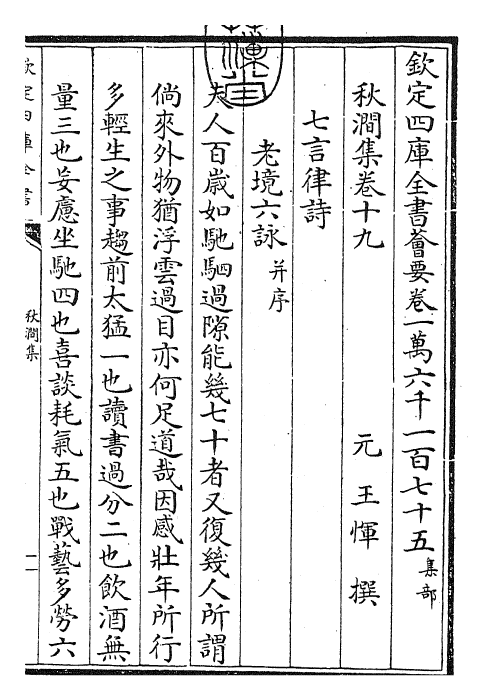 欽定四庫全書薈要卷一萬六千一百七十五 集部
秋澗集卷十九 元 王惲 撰
七言律詩
老境六詠 并序
夫人百歲如馳駟過隙能幾七十者又復幾人所謂
倘來外物猶浮雲過目亦何足道哉因感壯年所行
多輕生之事趨前太猛一也讀書過分二也飲酒無
量三也妄慮坐馳四也喜談耗氣五也戰藝多勞六
欽定四庫全書
秋澗集
一